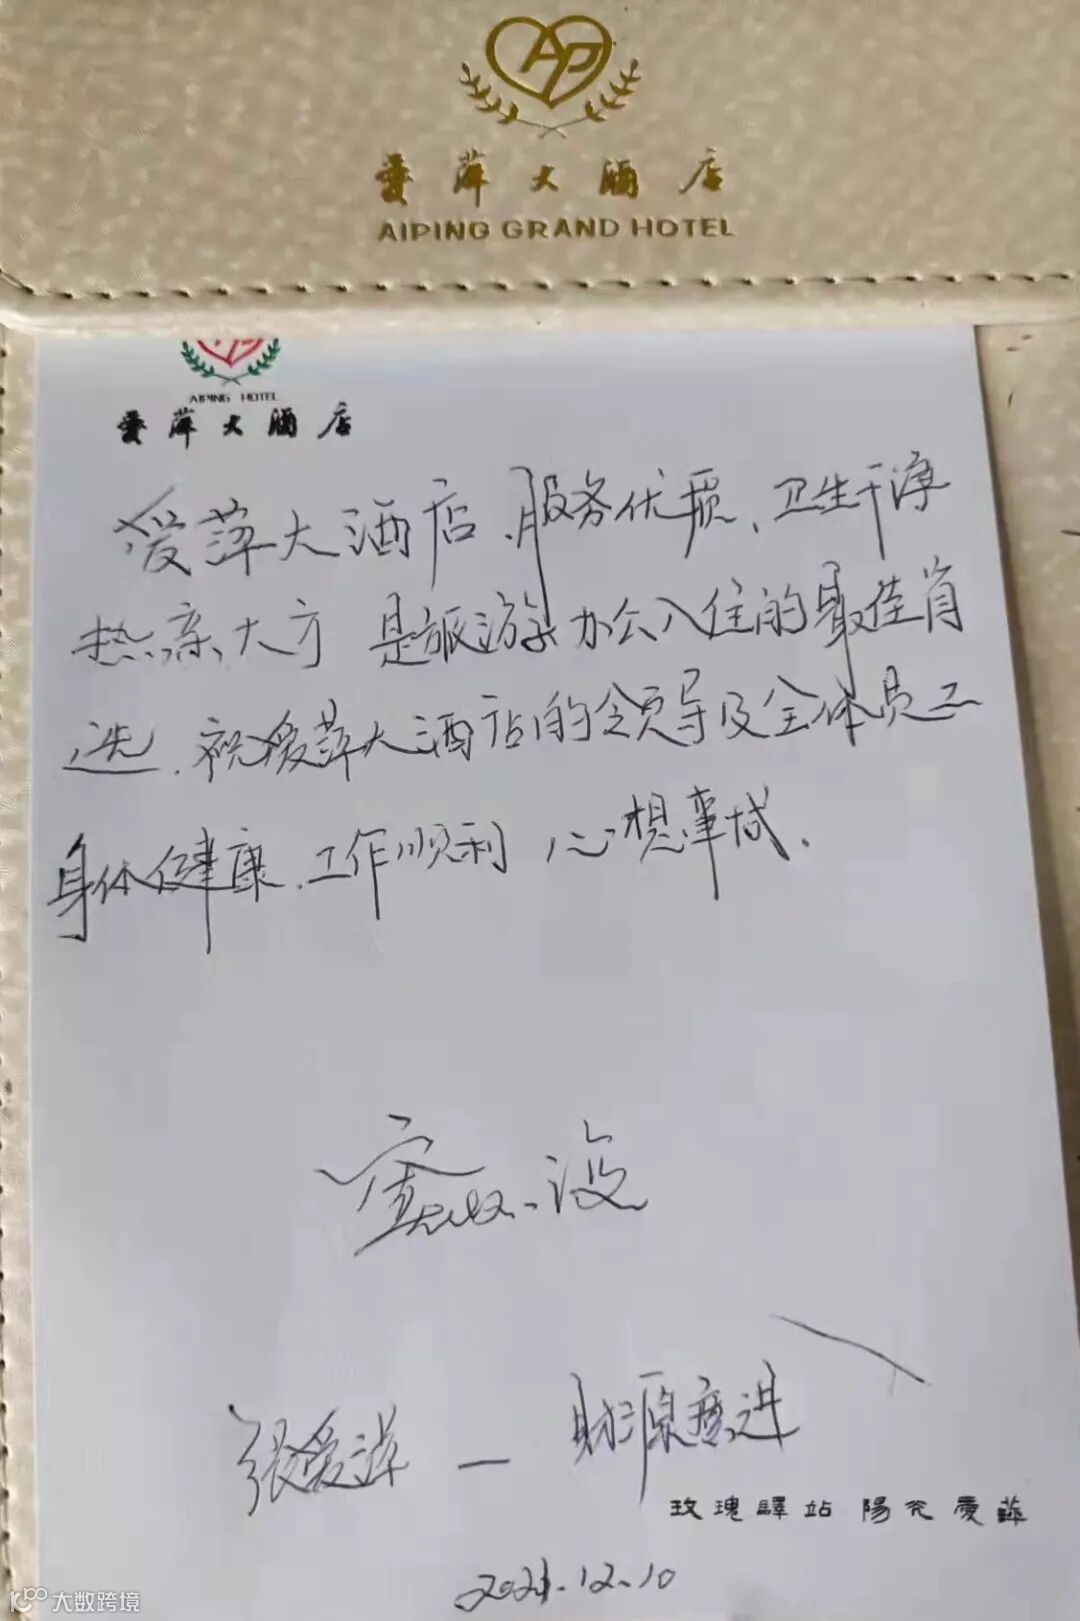 AP
愛萍大酒店
AIPING GRAND HOTEL
AIPING HOTEL
愛萍大酒店
爱萍大酒店,服务优质、卫生干净
热亲大方 是旅游办公入住的最佳首
选.祝爱萍大酒店的领导及全体员工
身体健康.工作顺利 心想事成.
张爱萍 — 财源广进
玫瑰驛站 陽光愛萍
2021.12.10
大数跨境